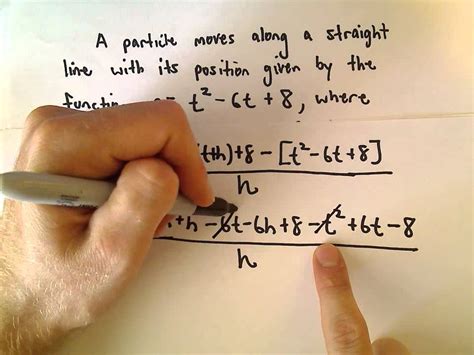 A particle moves along a straight
line with its position given by the
t² - 6t + 8, where
+h) + 8 - [t² - 6t + 8]
h
+h - 6t - 6h + 8 - t² + 6t - 8
h